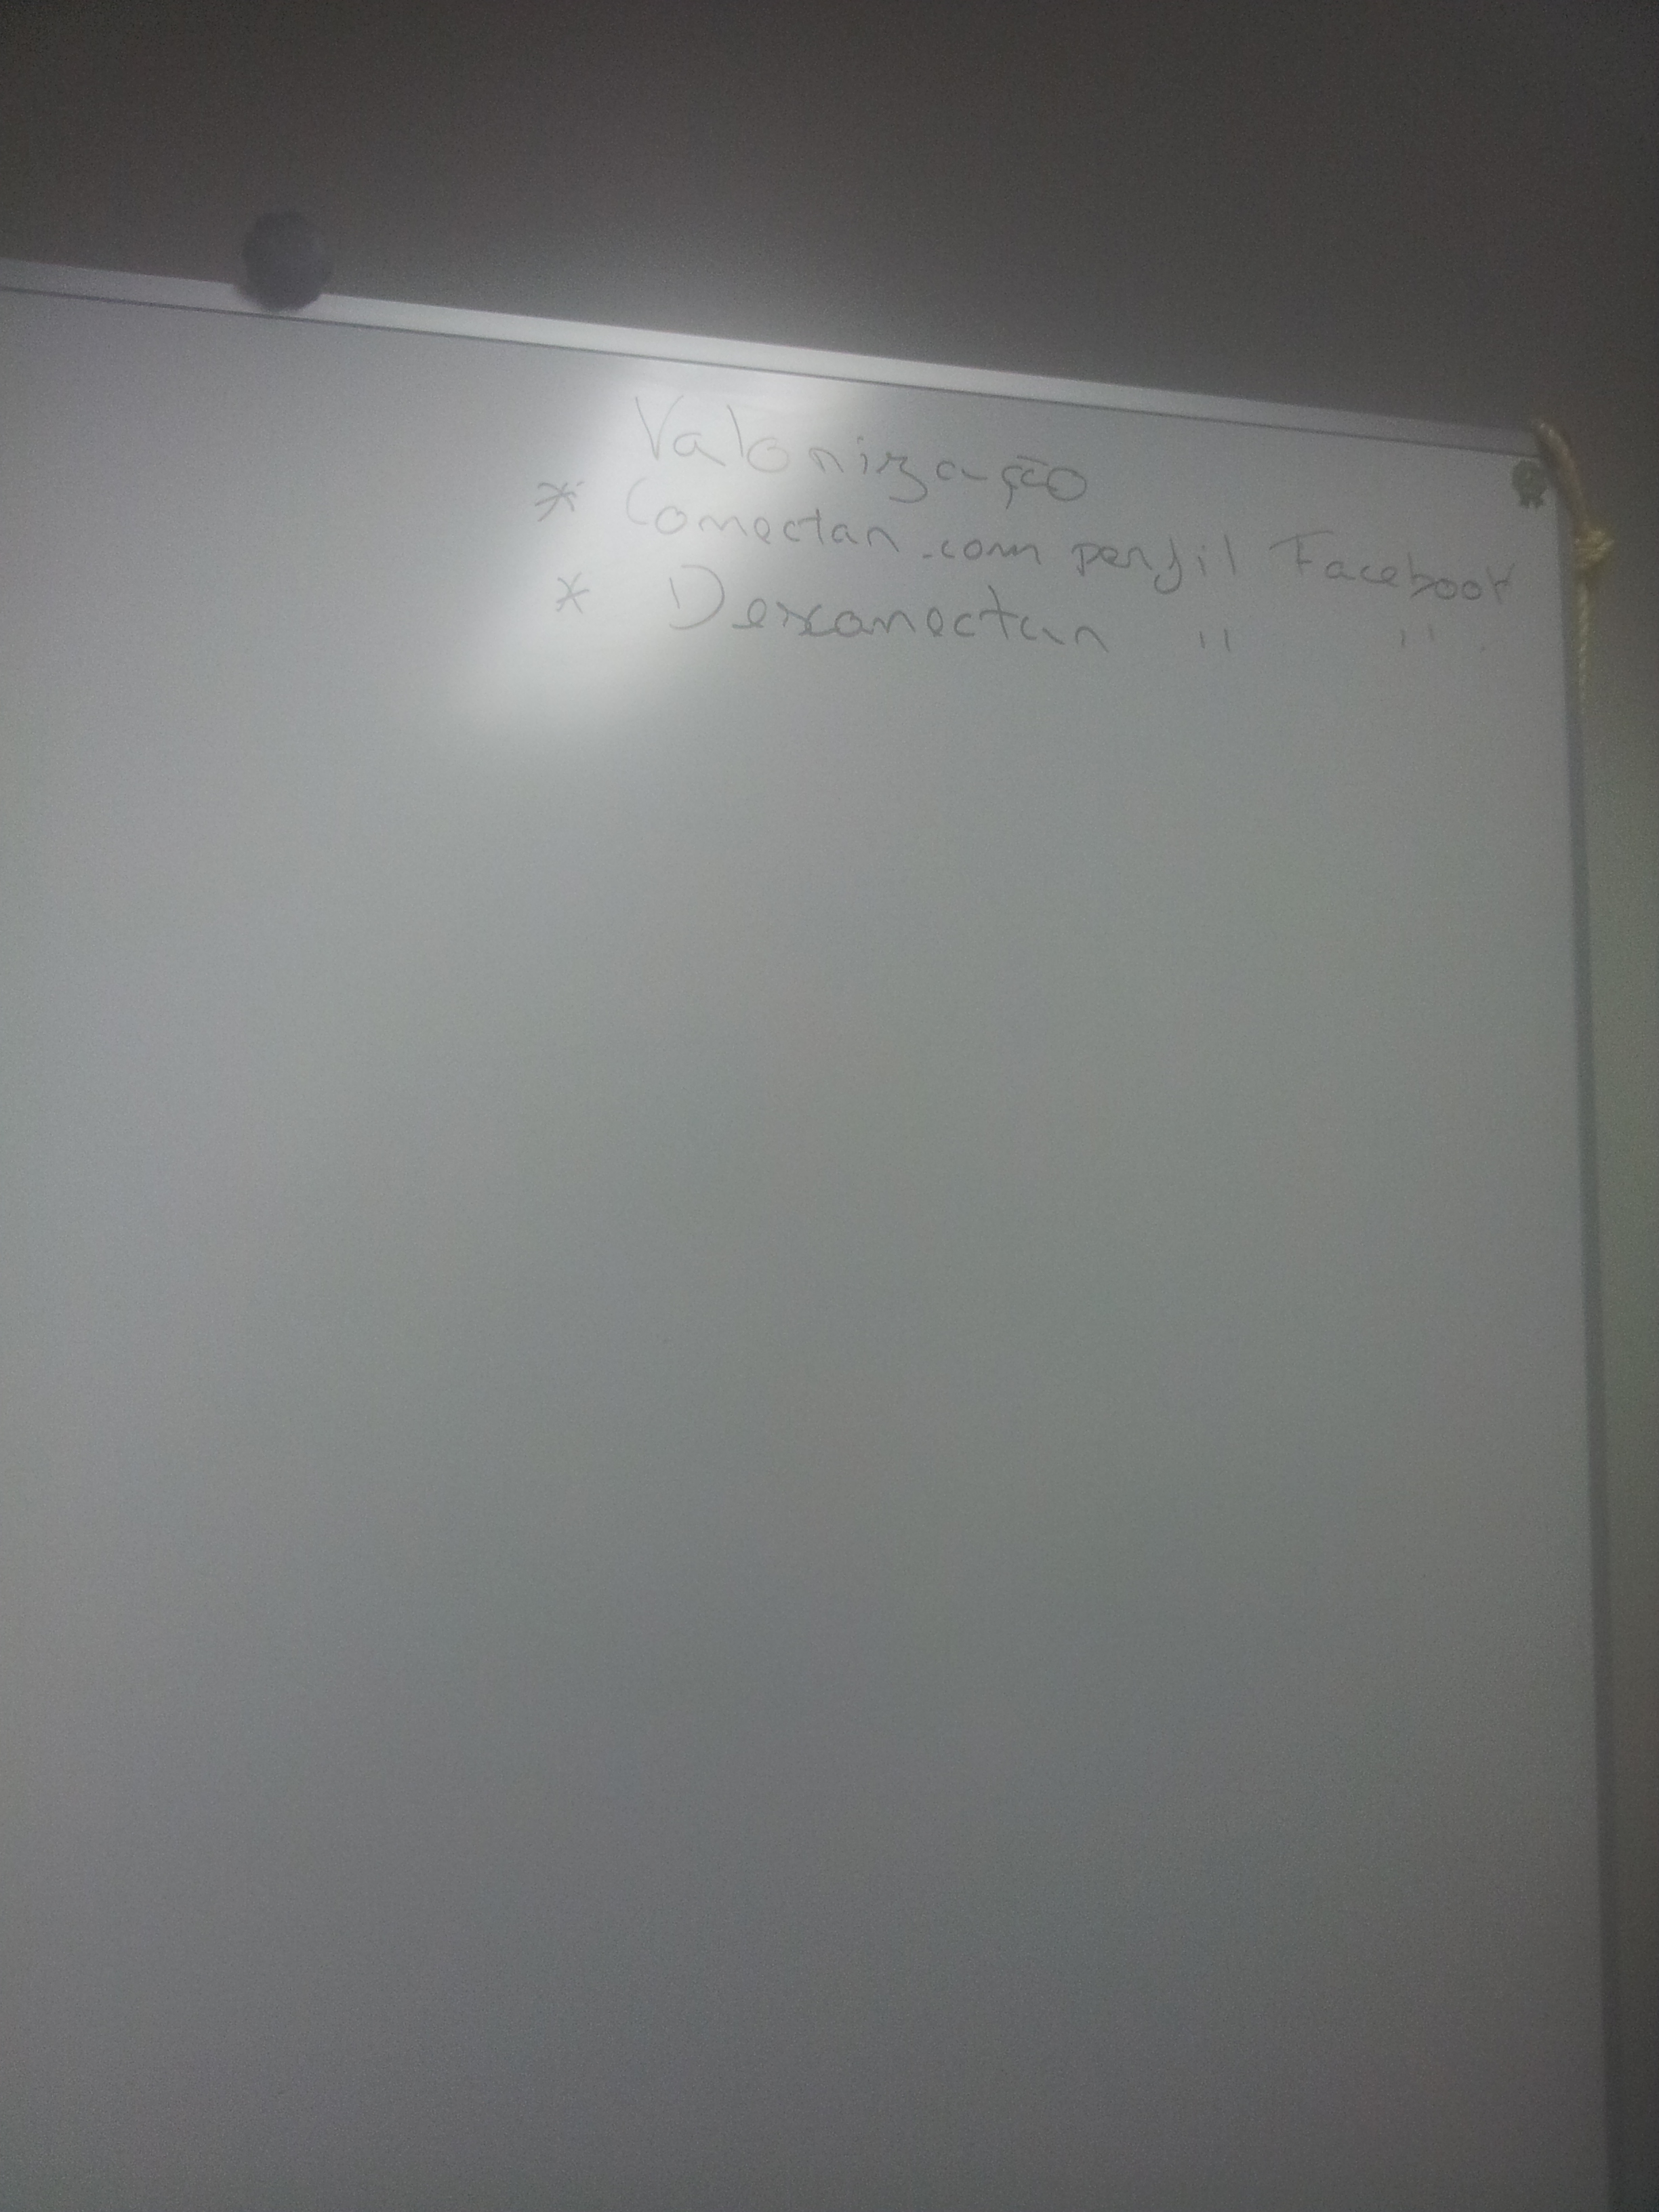 Valorização
* Comectar com perfil Facebook
* Desconectar " "